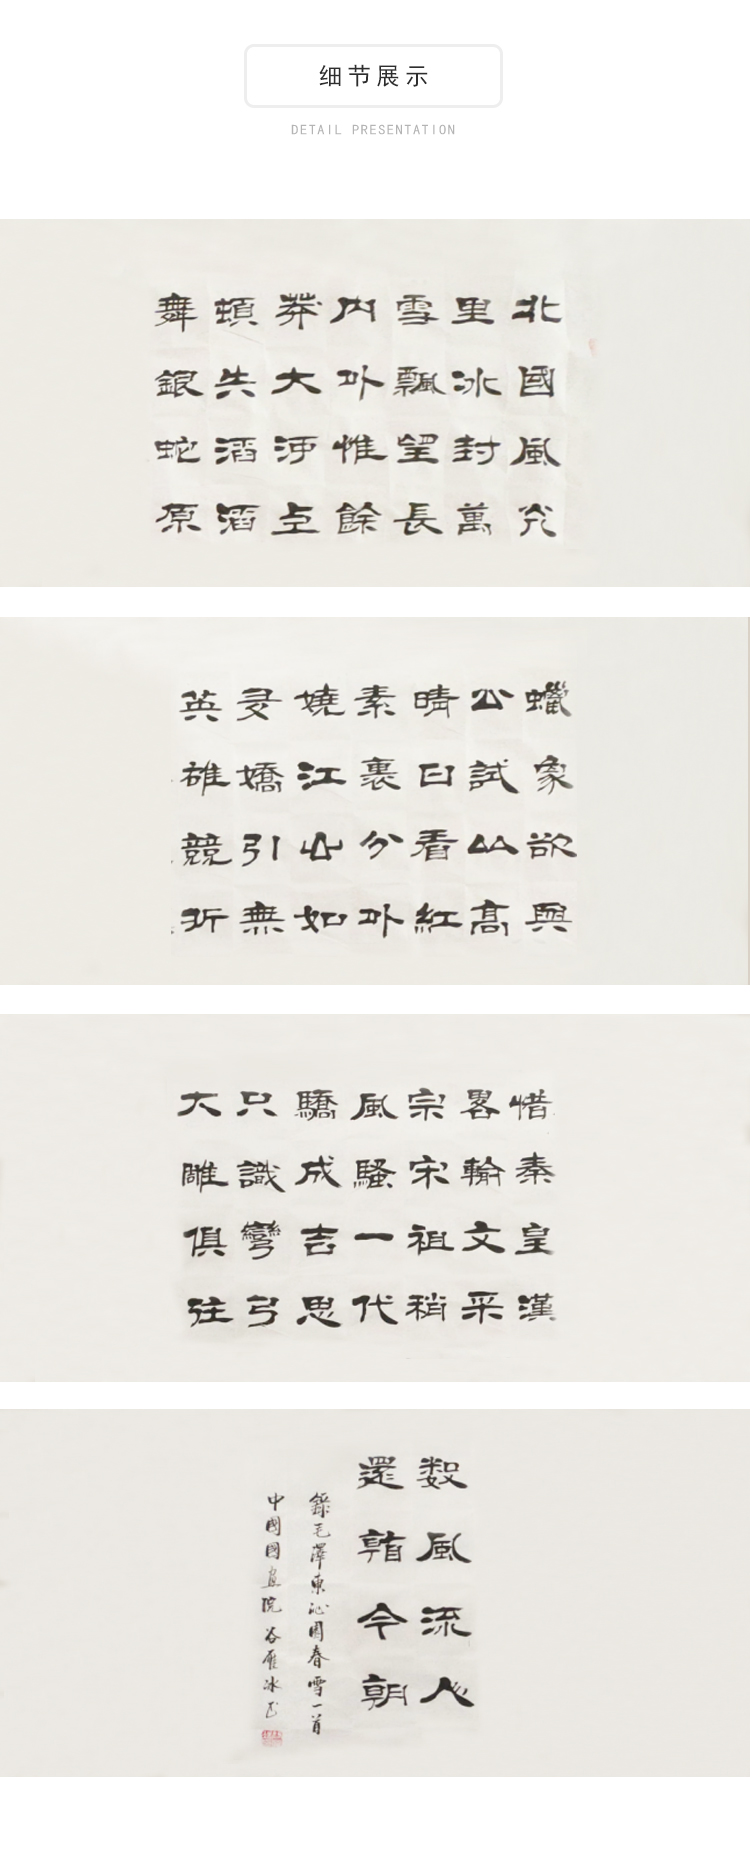 细节展示
DETAIL PRESENTATION
北國風光
里冰封萬
雪飄望長
内外惟餘
莽大河上
頓失滔滔
舞銀蛇原
蠟象欲興
公試山高
晴日看紅
素裹分外
嬈江山如
多嬌引無
英雄競折
惜秦皇漢
畧輸文采
宗宋祖稍
風騷一代
驕成吉思
只識彎弓
大雕俱往
数風流人
還今朝
錄毛澤東沁園春雪一首
中國國画院 谷雁冰书